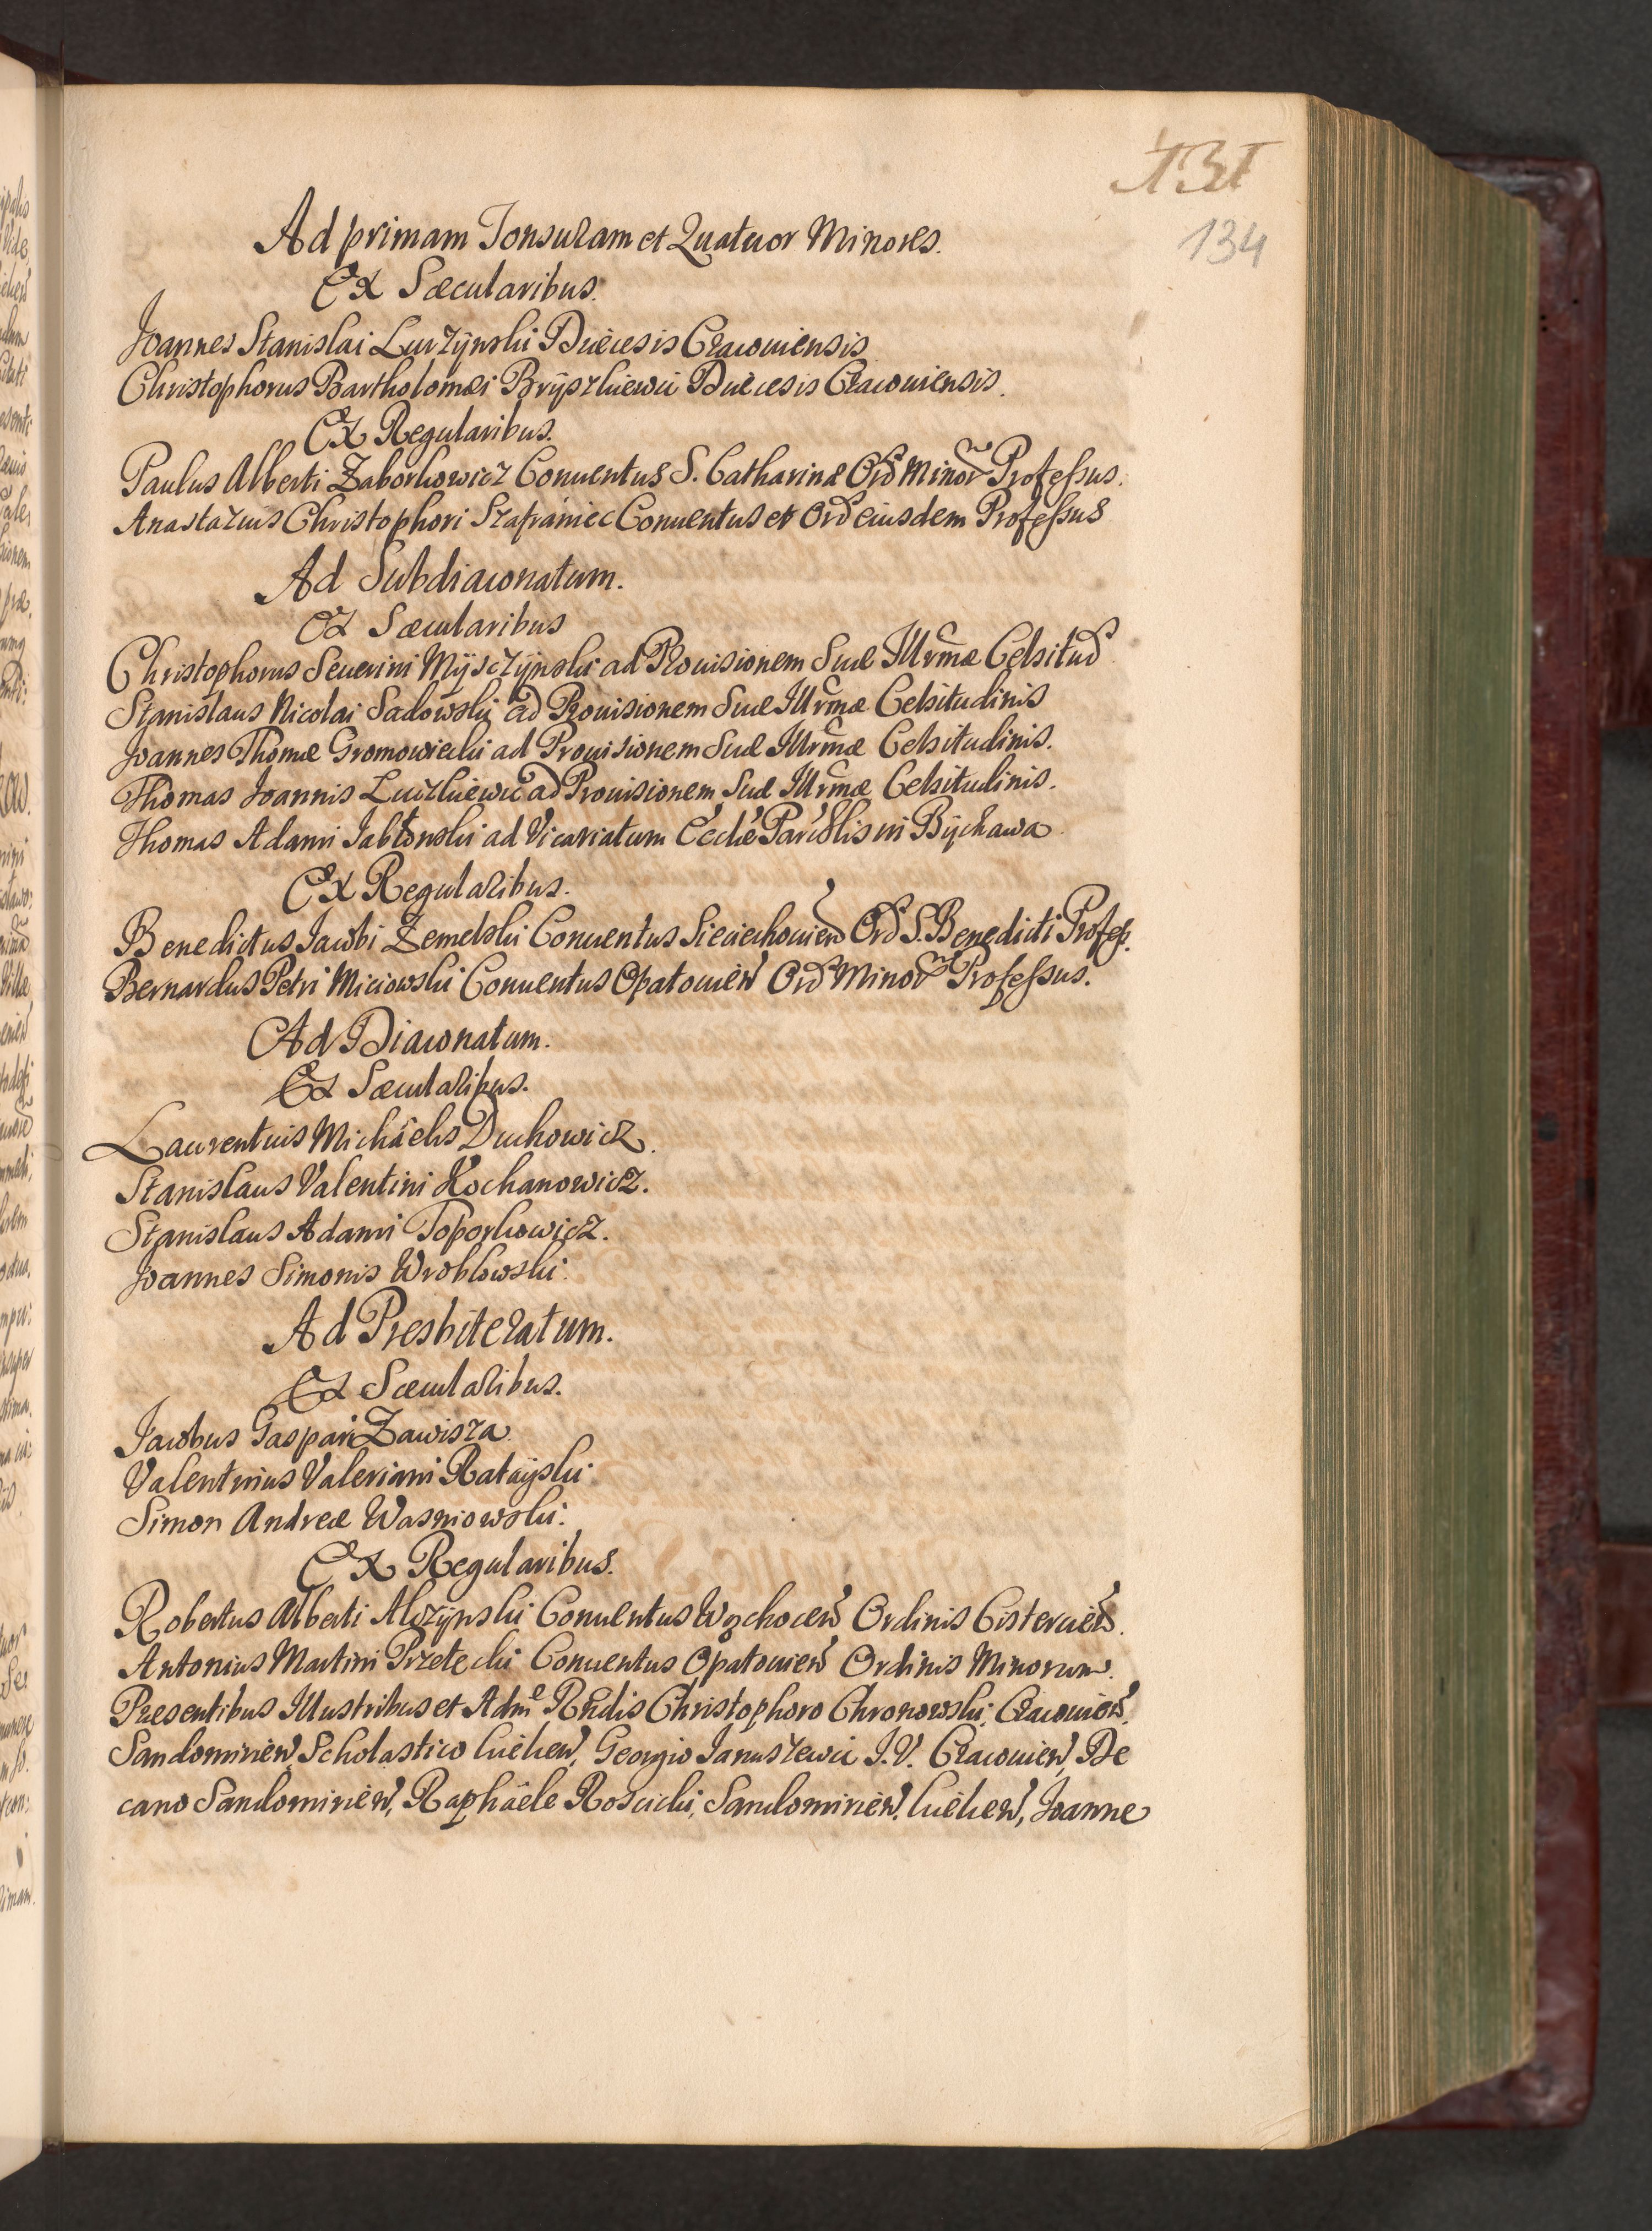 131
134
Ad primam Tonsuram et Quatuor Minores.
Ex Sæcularibus.
Joannes Stanislai Luczÿnski Diæcesis Cracouiensis
Christophorus Bartholomæi Brÿszkiewic Diæcesis Cracouiensis.
Ex Regularibus.
Paulus Alberti Zaborkowicz Conuentus S. Catharinæ Ord Minor Professus.
Anastazius Christophori Szafraniec Conuentus et Ord eiusdem Professus
Ad Subdiaconatum.
Ex Sæcularibus
Christophorus Seuerini Mÿsczÿnski ad Prouisionem Suæ Illrmæ Celsitud
Stanislaus Nicolai Sadowski ad Prouisionem Suæ Illrmæ Celsitudinis
Joannes Thomæ Gromowiecki ad Prouisionem Suæ Illrmæ Celsitudinis.
Thomas Joannis Luczkiewic ad Prouisionem Suæ Illrmæ Celsitudinis.
Thomas Adami Jabłonski ad Vicariatum Ecclê Parôlis in Bÿchawa
Ex Regularibus.
Benedictus Jacobi Zemelski Conuentus Sieciechouien Ord S. Benedicti Profess.
Bernardus Petri Miciowski Conuentus Opatouien Ord Minor Professus.
Ad Diaconatum.
Ex Sæcularibus.
Laurentius Michäelis Duchowicz.
Stanislaus Valentini Kochanowicz.
Stanislaus Adami Toporkowicz.
Joannes Simonis Wroblowski.
Ad Presbiteratum.
Ex Sæcularibus.
Jacobus Gaspari Zawisza
Valentinus Valeriani Ratayski.
Simon Andreæ Wasniowski.
Ex Regularibus.
Robertus Alberti Alczÿnski Conuentus Wąchocen Ordinis Cistercien.
Antonius Martini Przetecki Conuentus Opatouien Ordinis Minorum.
Presentibus Illustribus et Adme Rndis Christophoro Chronowski, Cracouien,
Sandomirien Scholastico Kielcen, Georgio Januszewic J.V. Cracouien, De
cano Sandomirien, Raphäele Roscicki, Sandomirien, Kielcen, Joanne